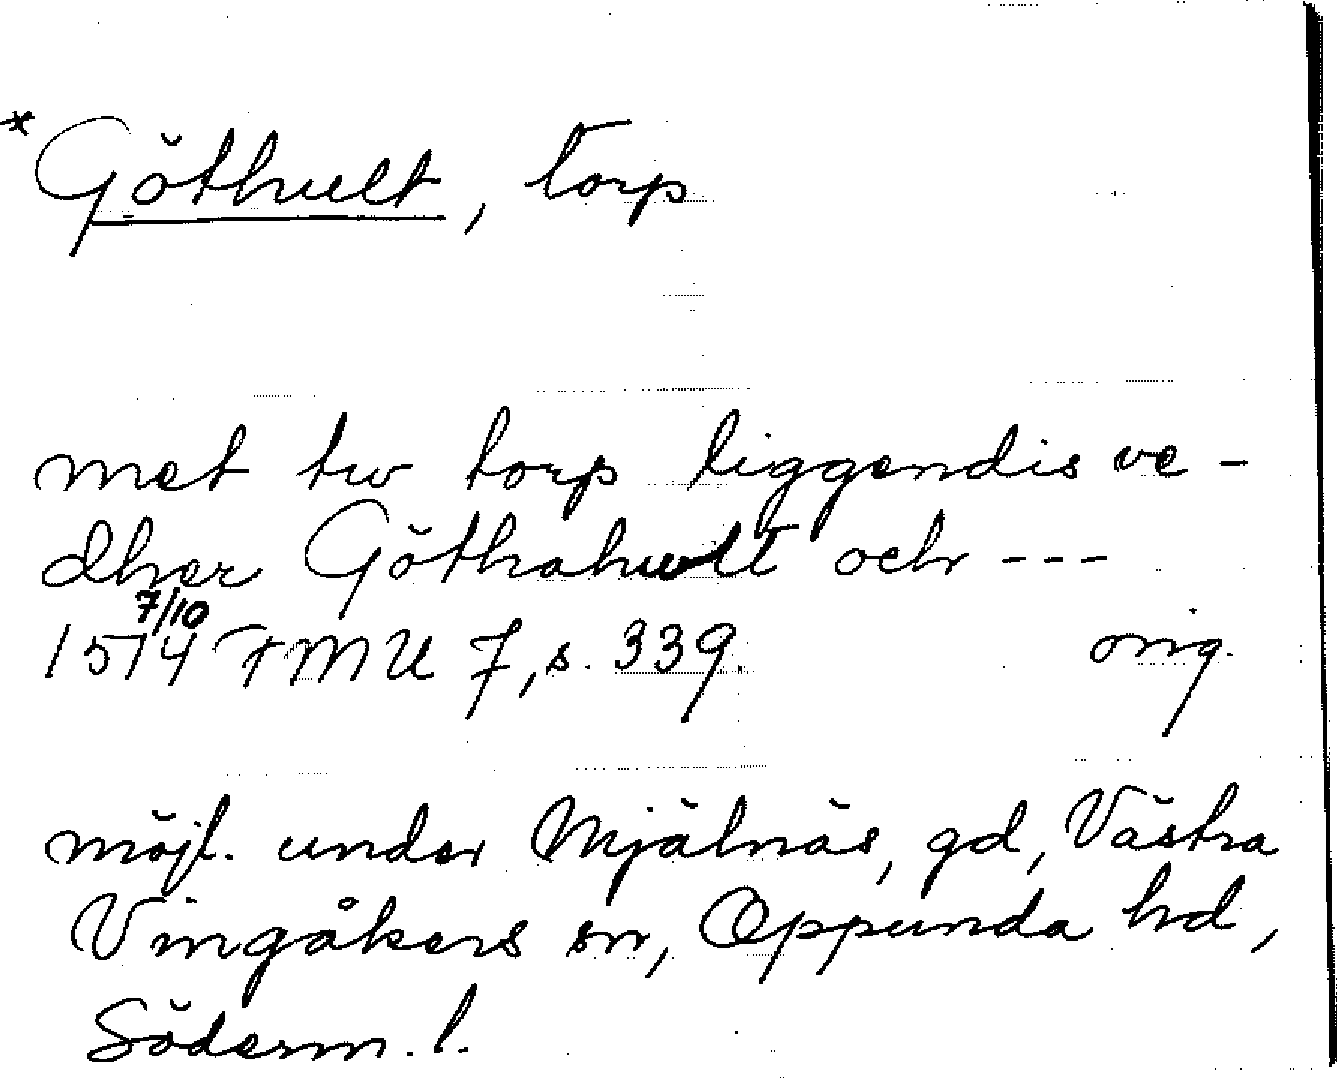 * Göthult, torp
met tw torp liggendis ve-
dher Göthahult och ---
7/10
1514 FMU 7, s. 339 orig.
möjl. under Mjälnäs, gd, Västra
Vingåkers sn, Oppunda hd,
Söderm. l.